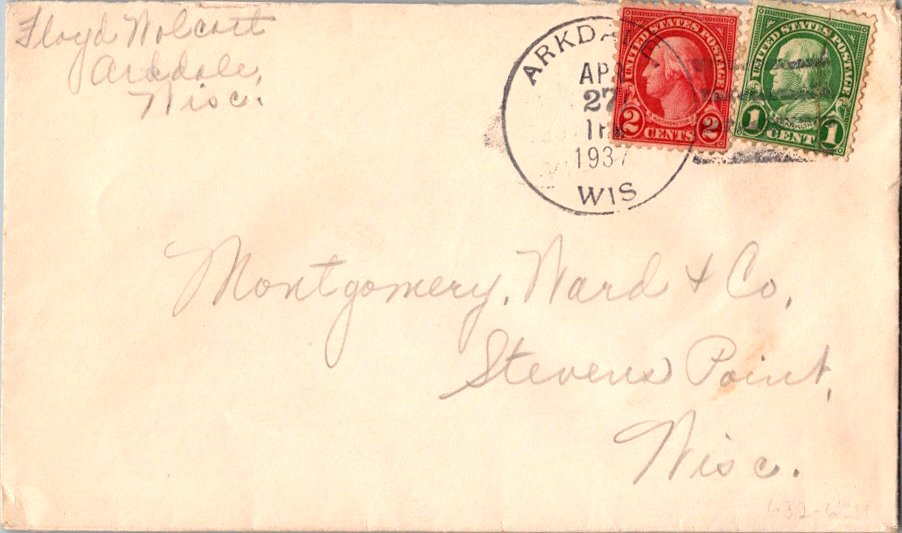 Floyd Wolcott
Arkdale,
Wisc.
ARKDALE
APR
27
1937
WIS
UNITED STATES POSTAGE
2 CENTS 2
UNITED STATES POSTAGE
1 CENT 1
Montgomery, Ward & Co,
Stevens Point,
Wisc.